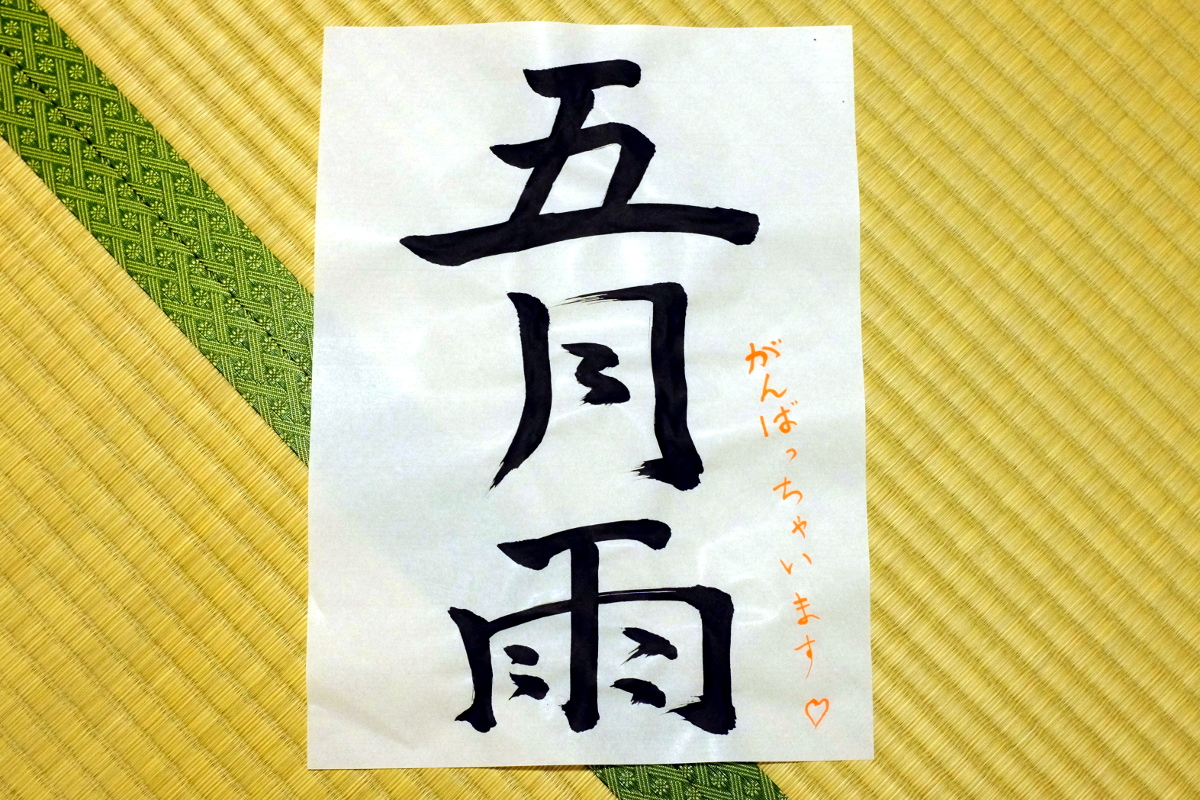 五月雨
がんばっちゃいます♡